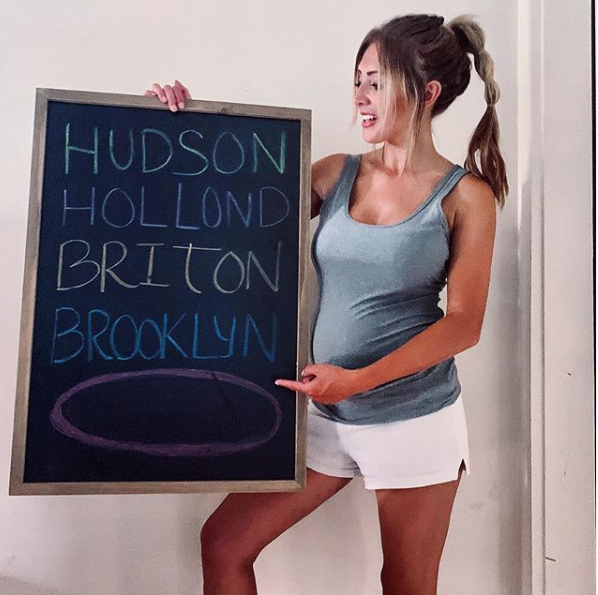 HUDSON
HOLLOND
BRITON
BROOKLYN